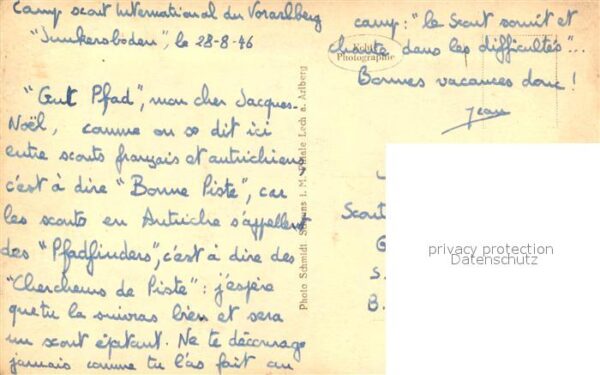 Camp scout International du Vorarlberg
"Junkersboden", le 28-8-46
"Gut Pfad", mon cher Jacques-
Noël, comme on se dit ici
entre scouts français et autrichiens,
c'est à dire "Bonne Piste", car
les scouts en Autriche s'appellent
des "Pfadfinders", c'est à dire des
"Chercheurs de Piste" : j'espère
que tu la suivras bien et sera
un scout épatant. Ne te décourage
jamais comme tu l'as fait au
camp : "Le Scout sourit et
chante dans les difficultés"...
Bonnes vacances donc !
Jean
Photographie
Photo Schmidt i. M. Filiale Lech a. Arlberg
Scout
G
S.
B.
privacy protection
Datenschutz